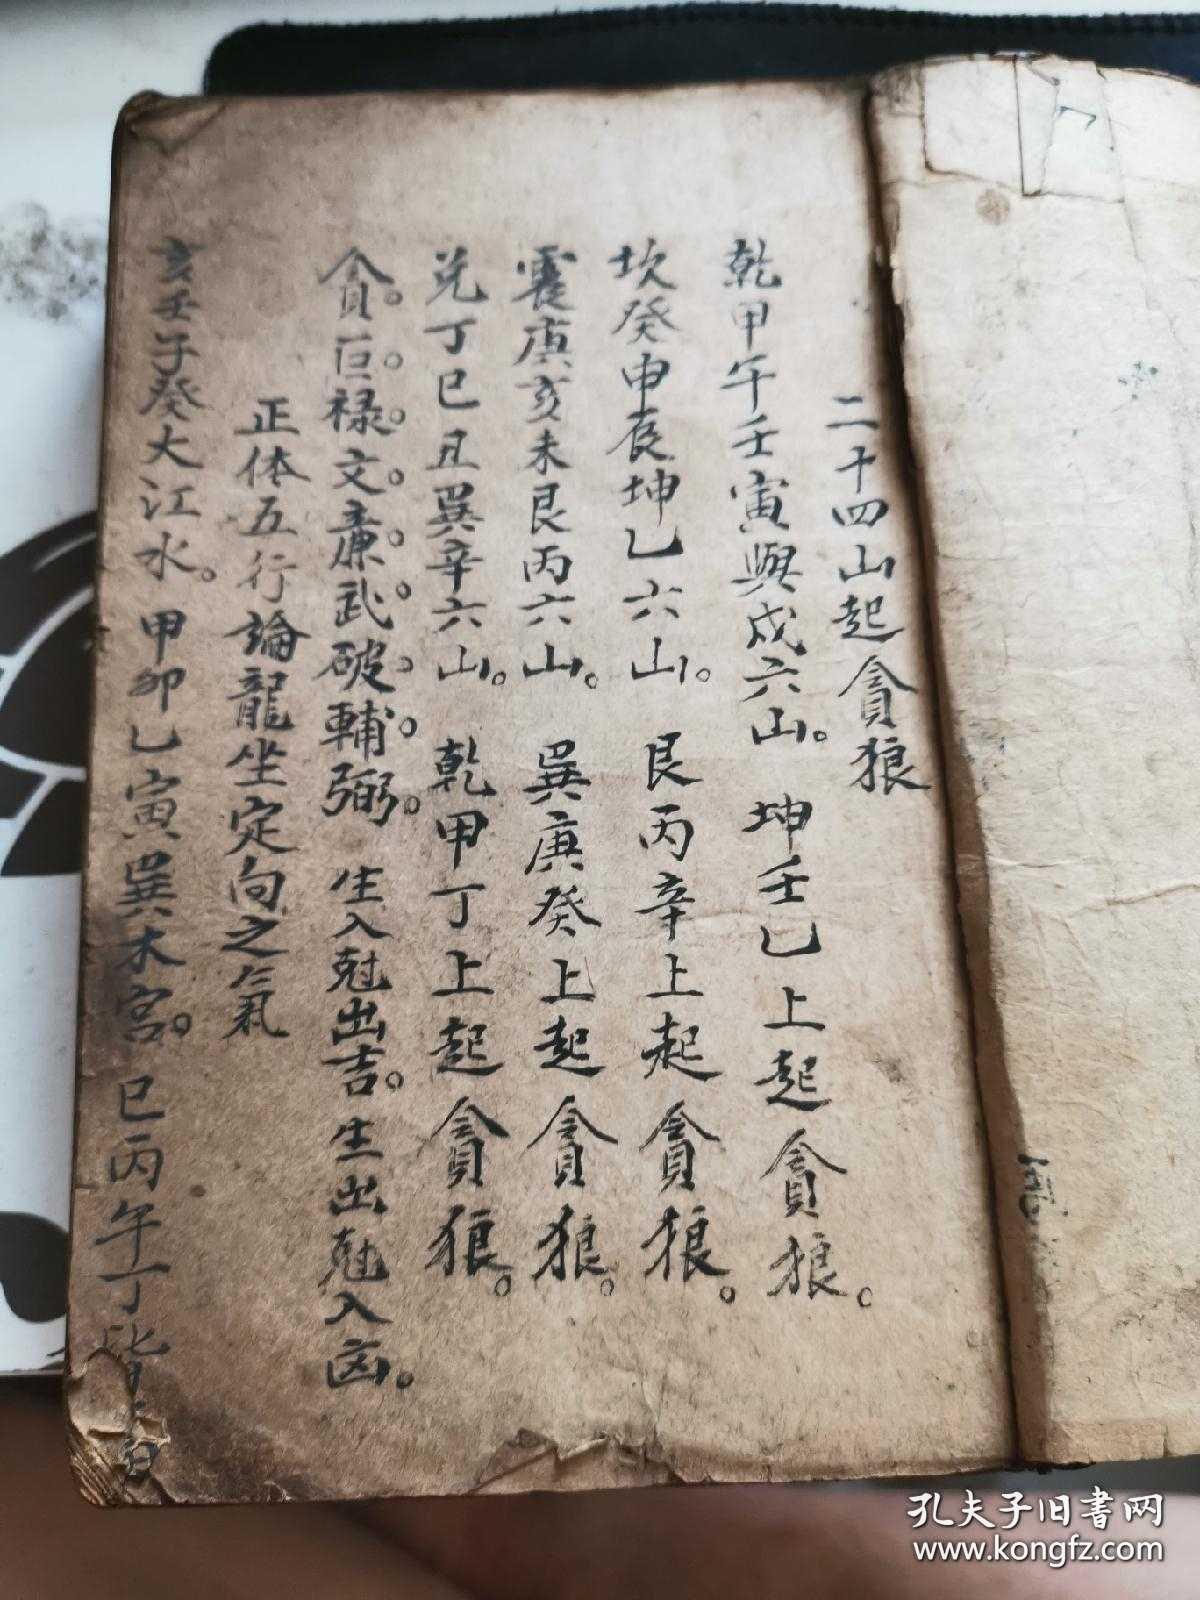 二十四山起貪狼
乾甲午壬寅與戌六山。坤壬乙上起貪狼。
坎癸申辰坤乙六山。艮丙辛上起貪狼。
震庚亥未艮丙六山。巽庚癸上起貪狼。
兑丁巳丑巽辛六山。乾甲丁上起貪狼。
貪。巨。禄。文。廉。武。破。輔。弼。生入尅出吉。生出尅入凶。
正体五行論龍坐定向之氣
亥壬子癸大江水。甲卯乙寅巽木宫。巳丙午丁皆
孔夫子旧书网
www.kongfz.com